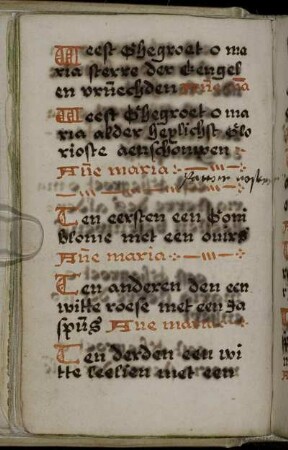 Weest Ghegroet o ma
ria sterre der Eengel
en vrŭechden Aue ma
Weest Ghegroet o ma
ria alder heylichst Glo
rioste aenschouwen
Aue maria
Ten eersten een Gom
blome met een duirs
Aue maria
Ten anderen den een
witte roese met een Ja
spŭs Aue maria
Ten derden een wi
tte leelien met een